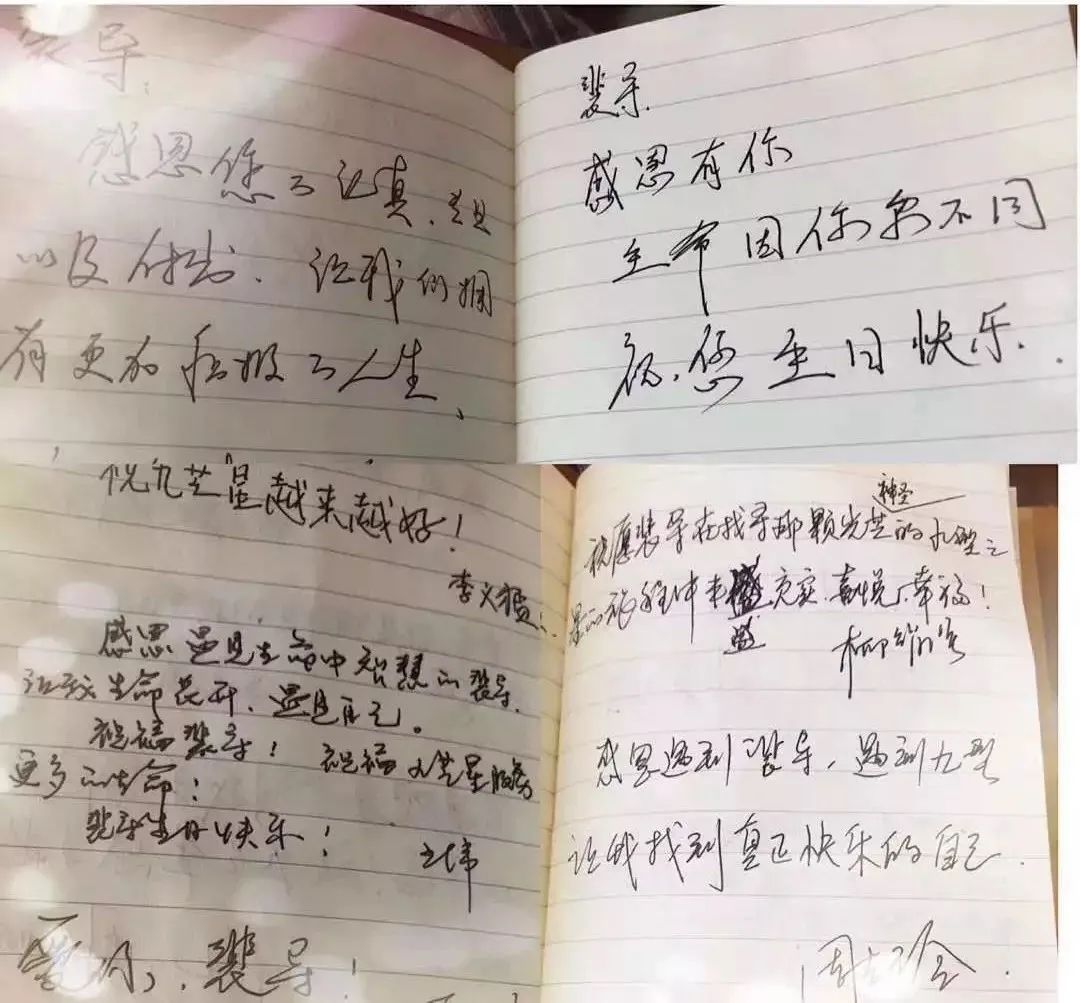 裴导:
感恩您的认真、
以及付出. 让我们拥
有更加积极的人生、
裴导.
感恩有你
生命因你而不同
祝.您生日快乐.
九芒星越来越好!
李义
感恩遇见生命中智慧的裴导,
让我生命花开,遇见自己。
祝福裴导! 祝福九芒星服务
更多的生命!
裴导生日快乐!
爱你,裴导!
神圣
祝愿裴导在找寻那颗光芒的九型之
星的旅程中 充实、喜悦、幸福!
柳
感恩遇到裴导,遇到九型
让我找到真正快乐的自己.
周